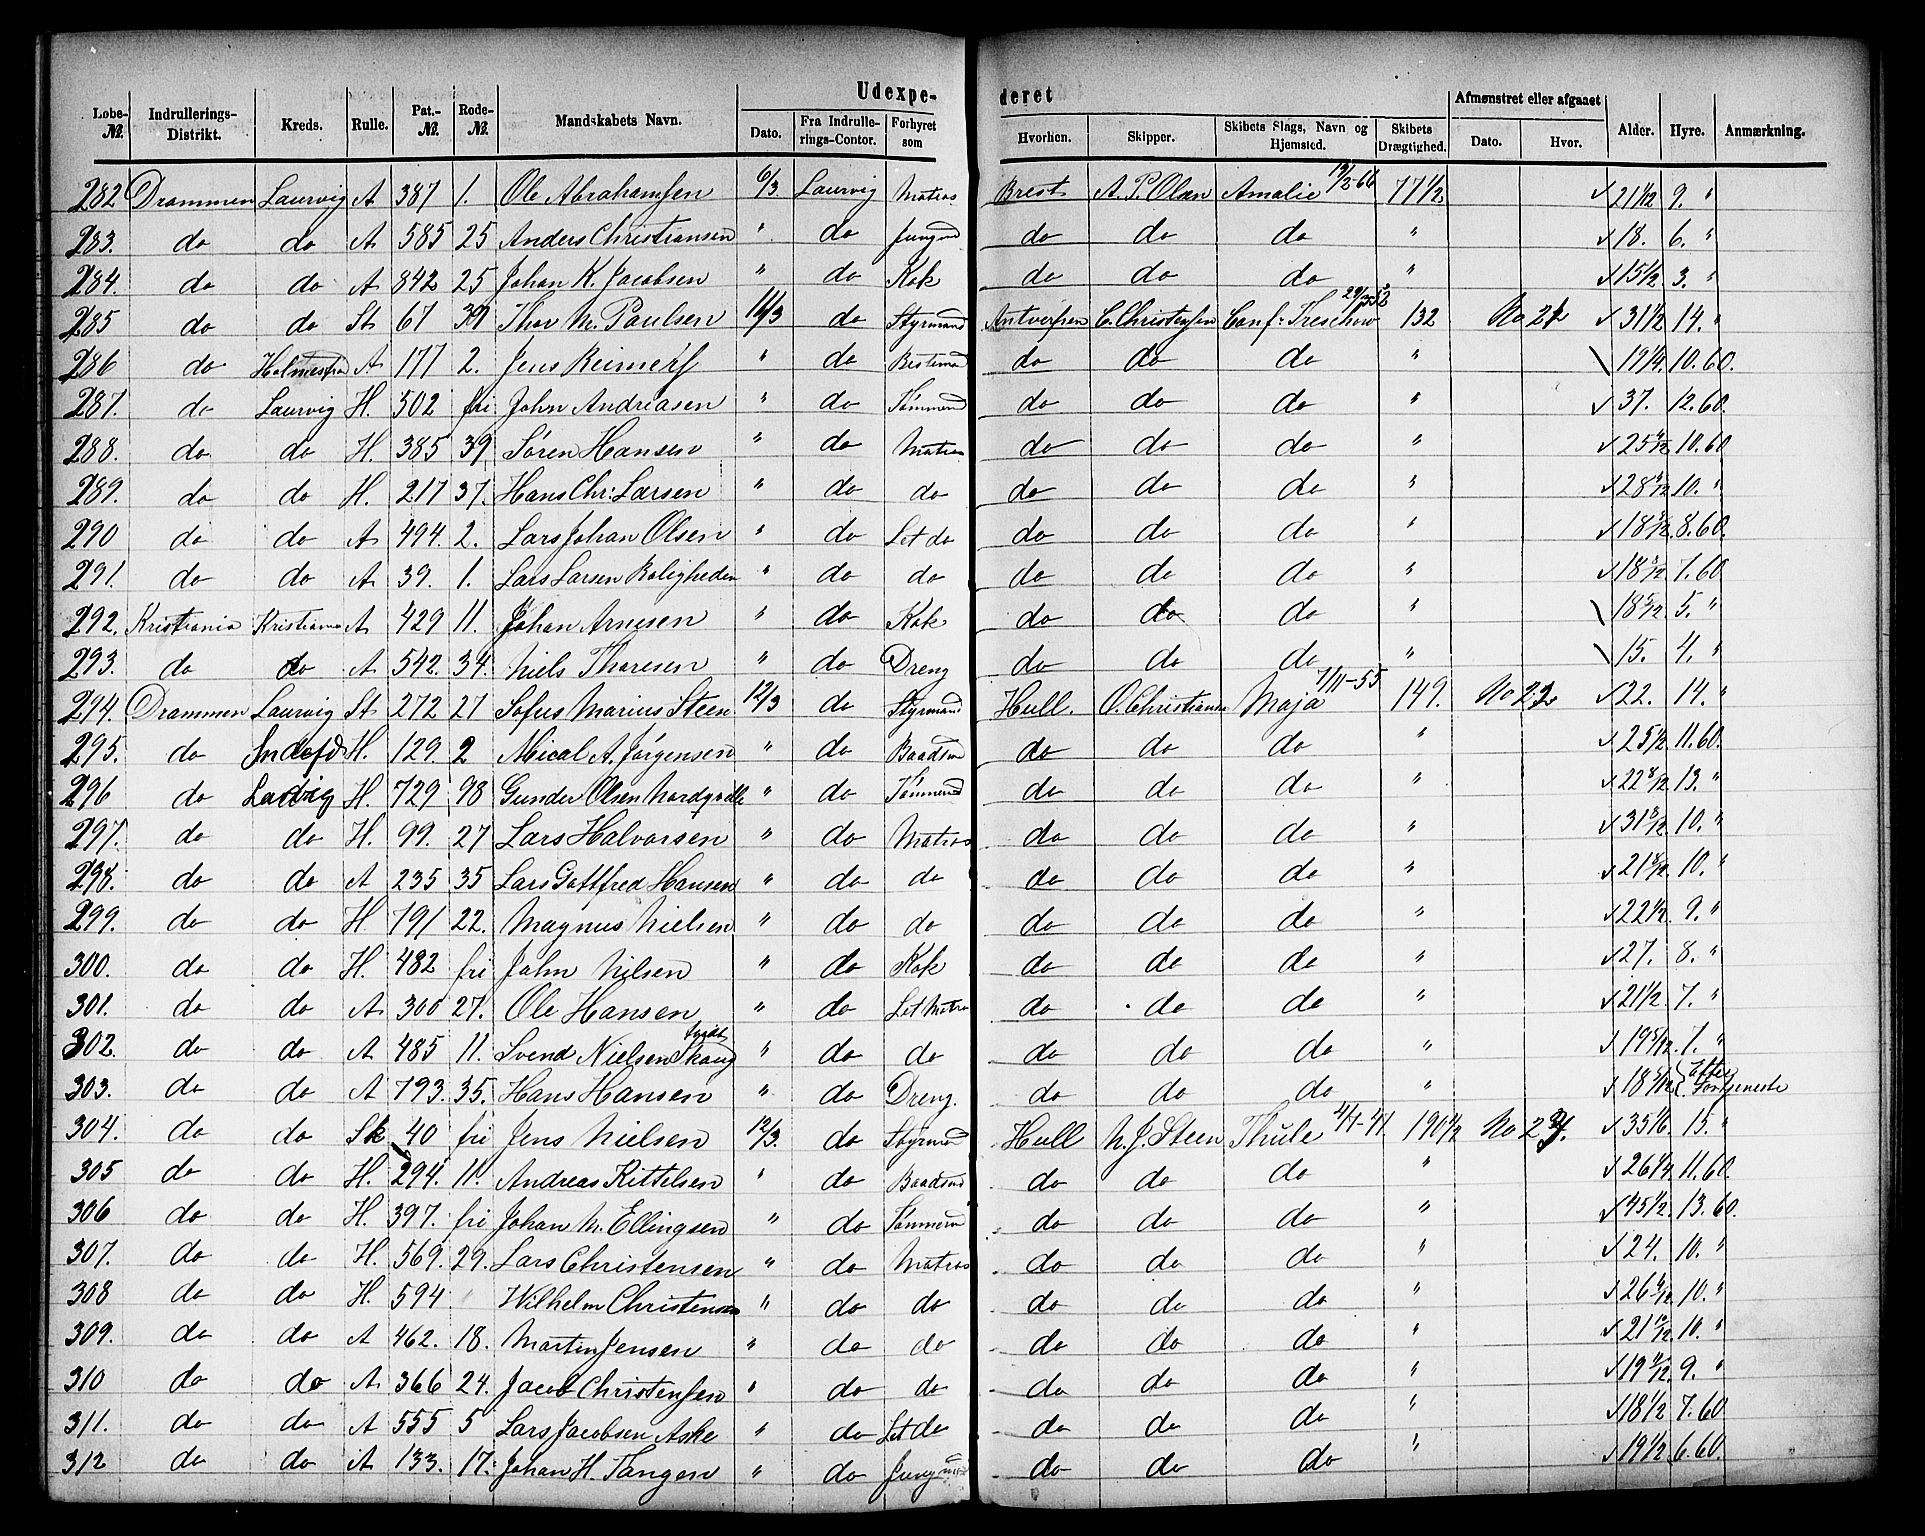 Udexpederet
Løbe-№. Indrullerings-Distrikt. Kreds. Rulle. Pat.-№. Rode-№. Mandskabets Navn. Dato. Fra Indrullerings-Contor. Forhyret som Hvorhen. Skipper. Skibets Slags, Navn og Hjemsted. Skibets Drægtighed. Afmønstret eller afgaaet Dato. Hvor. Alder. Hyre. Anmærkning.
282 Drammen Laurvig A 387 1. Ole Abrahamsen 6/3 Laurvig Matros Brest A. P. Olsen Amalie 77 1/2 21 1/12 9. "
283. do do A 585 25 Anders Christiansen " do Jungmd do do do " 18. 6. "
284. do do A 842 25 Johan K. Jacobsen " do Kok do do do " 15 1/2 3. "
285 do do St 67 39 Thor M. Paulsen 11/3 do Styrmand Antverpen C. Christensen Conf: Treschow 132 No 21 31 1/2 14. "
286 do Holmestrand A 177 2. Jens Reimers " do Bestmd do do do " 19 1/4 10.60.
287. do Laurvig H. 502 fri John Andreasen " do Tømmermd do do do " 37. 12.60.
288. do do H. 385 39 Søren Hansen " do Matros do do do " 25 10.60
289. do do H. 217 37. Hans Chr: Larsen " do do do do do " 28 10. "
290 do do A 494. 2. Lars Johan Olsen " do Let do do do do " 18 8.60.
291. do do A 39. 1. Lars Larsen Boligheden " do do do do do " 18 7.60
292. Kristiania Kristiania A 429 11. Johan Arnesen " do Kok do do do " 18 5/12 5. "
293. do do A 542. 34. Niels Thoresen " do Dreng do do do " 15. 4. "
294. Drammen Laurvig St 272 27 Sofus Marius Steen 12/3 do Styrmand Hull. O. Christiansen Maja 7/11-55 149. No 22 22. 14. "
295. do H. 129. 2 Mical A. Jørgensen " do Baadsmd do do do " 25 1/2 11.60.
296 do Larvig H. 729 98 Gunder Olsen " do Tømmermd do do do " 22 8/12 13. "
297. do do H. 99. 27 Lars Halvorsen " do Matros do do do " 31 10. "
298. do do A 235 35 Lars Gottfred Hansen " do do do do do " 21 10. "
299. do do H. 791 22. Magnus Nielsen " do do do do do " 22 1/2 9. "
300. do do H. 482 fri John Nilsen " do Kok do do do " 27. 8. "
301. do do A 300 27. Ole Hansen " do Let Matros do do do " 21 1/2 7. "
302. do do A 485 11. Svend Nielsen Skaug " do do do do do " 19 7. "
303. do do A 793. 35. Hans Hansen " do Dreng. do do do " 18 Efter Fortjeneste
304. do do Sk 40 fri Jens Nielsen 12/3. do Styrmd Hull N. J. Steen Thule 4/1-41 190 1/2 No 23. 35 1/6 15. "
305 do do H. 294. 11. Andreas Kittelsen " do Baadsmd do do do " 26 11.60.
306 do do H. 397. fri Johan M. Ellingsen " do Tømmermd do do do " 45 1/2 13.60.
307. do do H. 569. 29. Lars Christensen " do Matros do do do " 24. 10. "
308 do do H. 594 Wilhelm Christensen " do do do do do " 26 10. "
309. do do A 462. 18. Martin Jensen " do do do do do " 21 10/12 10. "
310 do do A 366 24. Jacob Christensen " do do do do do " 19 9. "
311. do do A 555 5 Lars Jacobsen Aske " do Let do do do do " 18 1/2 7.60
312 do do A 133. 17. Johan H. Tangen " do Jungmd do do do " 19 1/2 6.60.